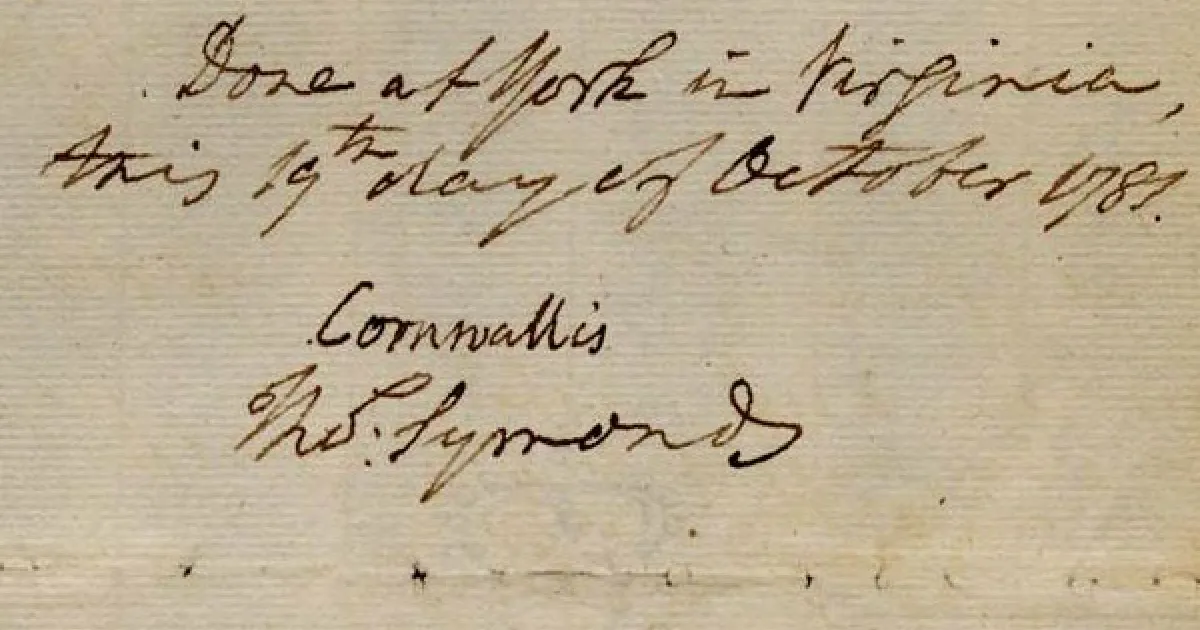 Done at York in Virginia,
this 19th day of October 1781.
Cornwallis
Thos. Symonds